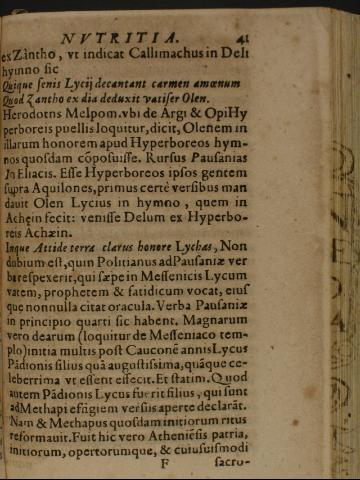 NVTRITIA. 41
ex Zãntho, vt indicat Callimachus in Deli
hymno sic
Quique senis Lycij decantant carmen amœnum
Quod Zantho ex dia deduxit vatifer Olen.
Herodotns Melpom. vbi de Argi & OpiHy
perboreis puellis loquitur, dicit, Olenem in
illarum honorem apud Hyperboreos hym-
nos quosdam cõposuisse. Rursus Pausanias
In Eliacis. Esse Hyperboreos ipsos gentem
supra Aquilones, primus certè versibus man
dauit Olen Lycius in hymno, quem in
Achęin fecit: venisse Delum ex Hyperbo-
reis Achæin.
Inque Attide terra clarus honore Lychas, Non
dubium est, quin Politianus ad Pausaniæ ver
ba respexerit, qui sæpe in Messenicis Lycum
vatem, prophetem & fatidicum vocat, eiusque
que nonnulla citat oracula. Verba Pausaniæ
in principio quarti sic habent. Magnarum
vero dearum (loquitur de Messeniaco tem-
plo) initia multis post Cauconẽ annis Lycus
Pãdionis filius quã augustissima, quãque ce-
leberrima vt essent effecit. Et statim. Quod
autem Pãdionis Lycus fuerit filius, qui sunt
ad Methapi effigiem versus aperte declarãt.
Nam & Methapus quosdam initiorum ritus
reformauit. Fuit hic vero Atheniẽsis patria,
initiorum, opertorumque, & cuiusuismodi
F sacro-